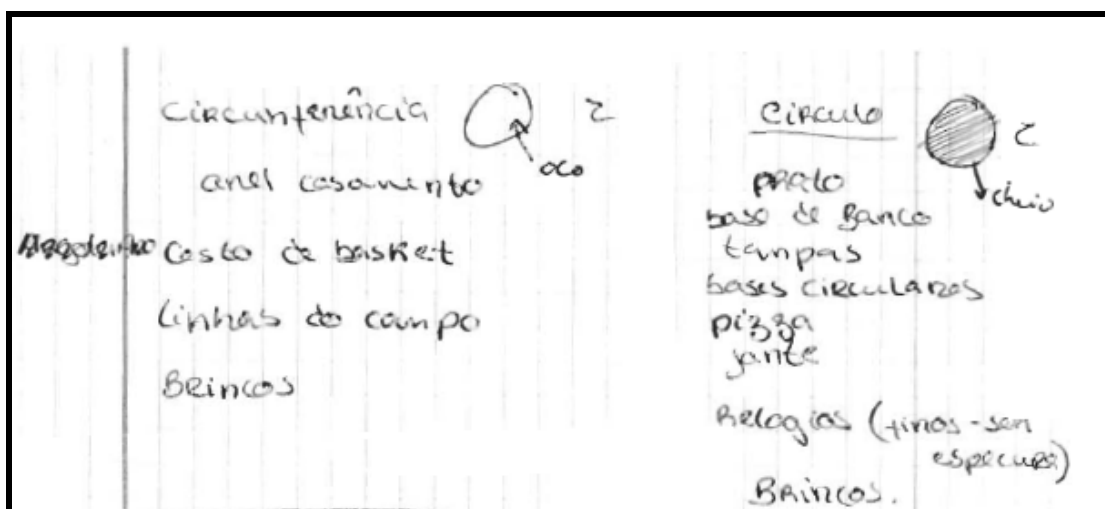 Circunferência
oco
anel casamento
Cesto de basket
Linhas do campo
Brincos
Circulo
cheio
prato
base de Banco
tampas
bases circulares
pizza
jante
Relogios (finos - sem
especura)
Brincos.